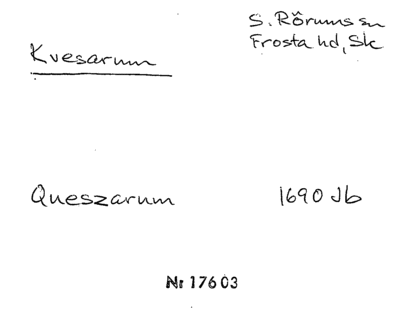 S. Rörums sn
Frosta hd, Sk
Kvesarum
Queszarum 1690 Jb
Nr 17603